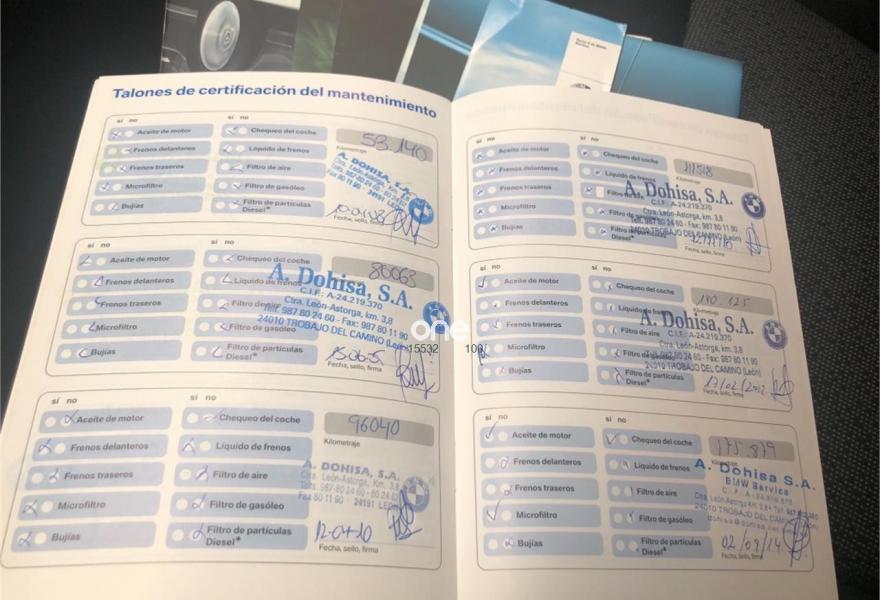 Talones de certificación del mantenimiento
sí no
Aceite de motor
Frenos delanteros
Frenos traseros
Microfiltro
Bujías
sí no
Chequeo del coche
Líquido de frenos
Filtro de aire
Filtro de gasóleo
Filtro de partículas
Diesel*
53.140
Kilometraje
A. DOHISA, S.A.
Fecha, sello, firma
sí no
Aceite de motor
Frenos delanteros
Frenos traseros
Microfiltro
Bujías
sí no
Chequeo del coche
Líquido de frenos
Filtro de aire
Filtro de gasóleo
Filtro de partículas
Diesel*
86063
A. Dohisa, S.A.
C.I.F.: A-24.219.370
Ctra. León-Astorga, km. 3,8
Telf. 987 80 24 60 - Fax: 987 80 11 90
24010 TROBAJO DEL CAMINO (León)
Fecha, sello, firma
sí no
Aceite de motor
Frenos delanteros
Frenos traseros
Microfiltro
Bujías
sí no
Chequeo del coche
Líquido de frenos
Filtro de aire
Filtro de gasóleo
Filtro de partículas
Diesel*
96040
Kilometraje
A. DOHISA, S.A.
Ctra. León-Astorga, Km. 3,8
Fax 80 11 90 - 24191 LEÓN
12-04-10
Fecha, sello, firma
sí no
Aceite de motor
Frenos delanteros
Frenos traseros
Microfiltro
Bujías
sí no
Chequeo del coche
Líquido de frenos
Filtro de aire
Filtro de gasóleo
Filtro de partículas
Diesel*
Kilometraje
A. Dohisa, S.A.
C.I.F.: A-24.219.370
Ctra. León-Astorga, km. 3,8
Telf. 987 80 24 60 - Fax: 987 80 11 90
24010 TROBAJO DEL CAMINO (León)
Fecha, sello, firma
sí no
Aceite de motor
Frenos delanteros
Frenos traseros
Microfiltro
Bujías
sí no
Chequeo del coche
Líquido de frenos
Filtro de aire
Filtro de gasóleo
Filtro de partículas
Diesel*
140 125
A. Dohisa, S.A.
C.I.F.: A-24.219.370
Ctra. León-Astorga, km. 3,8
Telf. 987 80 24 60 - Fax: 987 80 11 90
24010 TROBAJO DEL CAMINO (León)
17/02/2012
Fecha, sello, firma
sí no
Aceite de motor
Frenos delanteros
Frenos traseros
Microfiltro
Bujías
sí no
Chequeo del coche
Líquido de frenos
Filtro de aire
Filtro de gasóleo
Filtro de partículas
Diesel*
175.879
Kilometraje
A. Dohisa S.A.
BMW Service
02/09/14
Fecha, sello, firma
one
15532